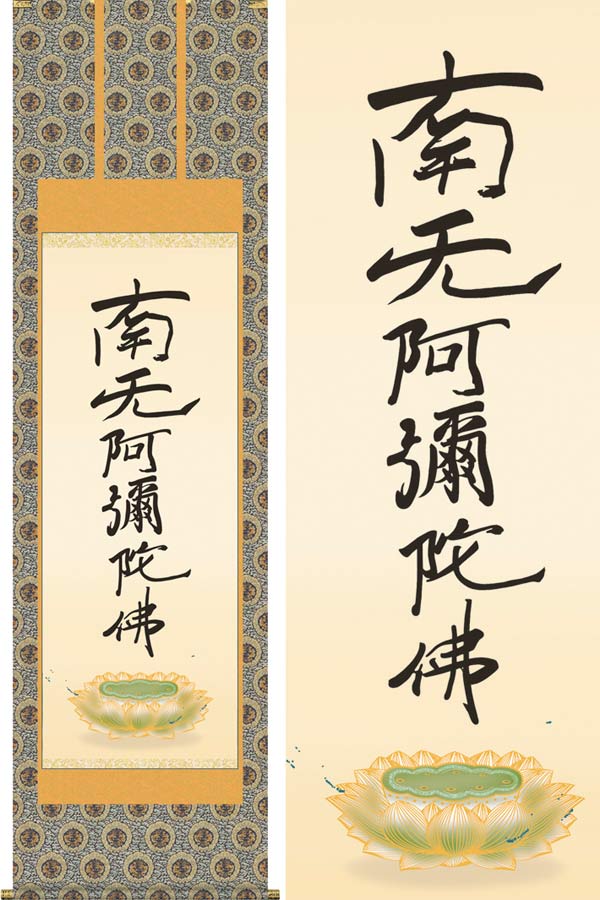 南无阿彌陀佛
南无阿彌陀佛